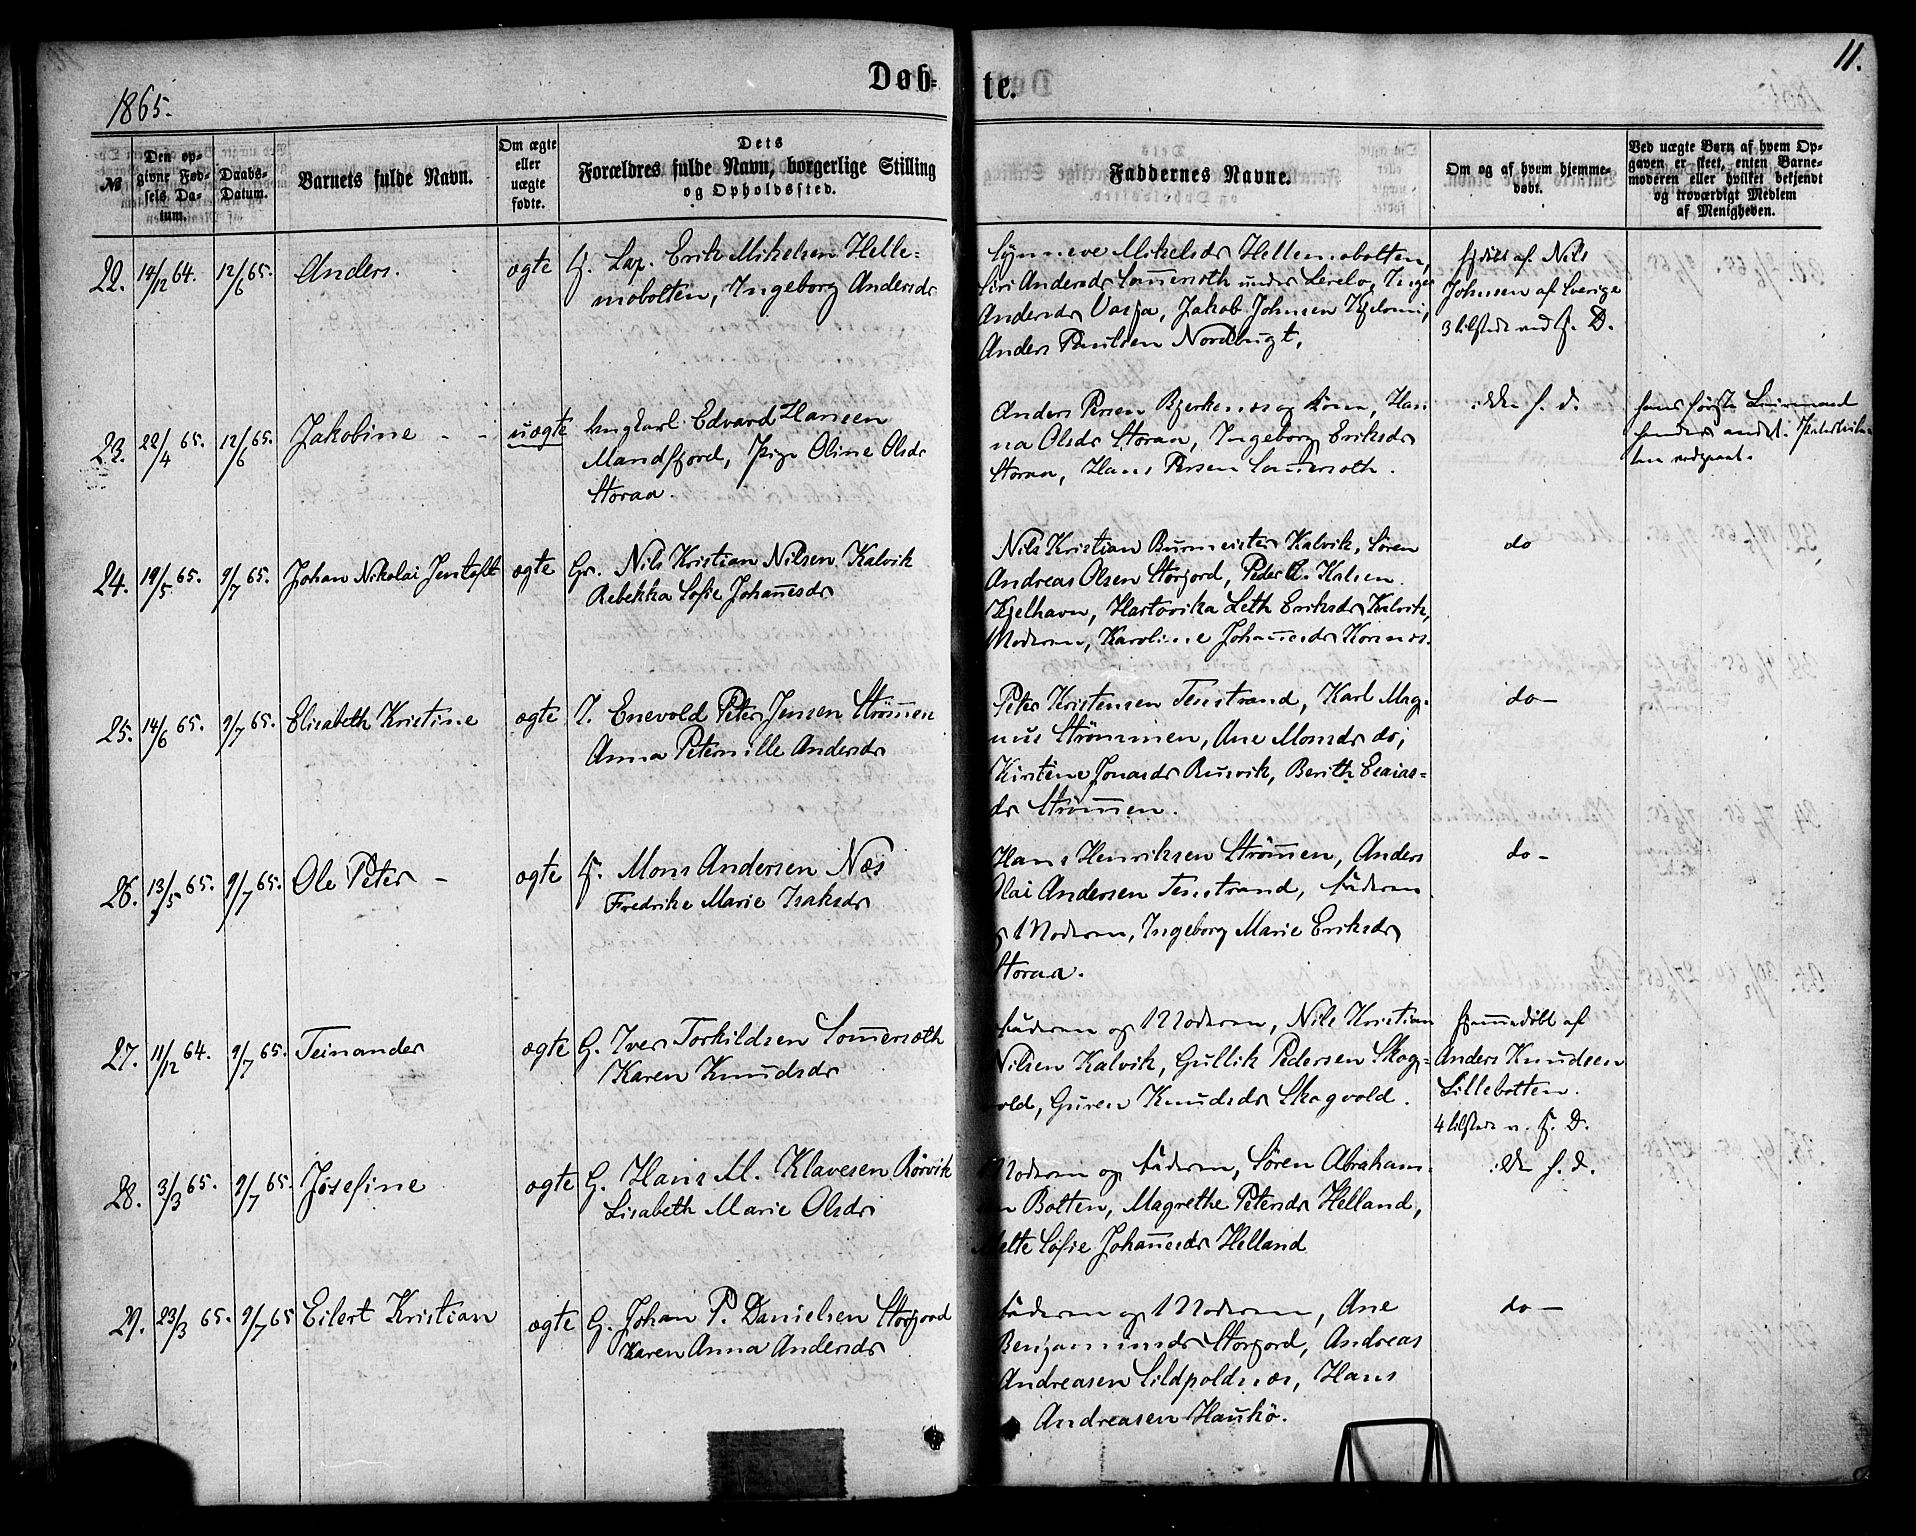 1865.
Døb-
te.
11.
№
Den op-
givne Fød-
sels Da-
tum.
Daabs-
Datum.
Barnets fulde Navn.
Om ægte
eller
uægte
fødte.
Dets
Forældres fulde Navn, borgerlige Stilling
og Opholdssted.
Faddernes Navne.
Om og af hvem hjemme-
døbt.
Ved uægte Børn af hvem Op-
gaven er skeet, enten Barne-
moderen eller hvilket bekjendt
og troværdigt Medlem
af Menigheden.
22. 14/12 64. 12/6 65. Anders. ægte F. Lap. Erik Mikelsen Helle-
mobotten, Ingeborg Andersdr
Synneve Mikelsdr Hellemobotten,
Siri Andersdr Sommersæth under Lerelv, Inger
Andersdr Vasja, Jakob Johnsen Kjelvmi,
Anders Paulsen Nordbugt,
Hjdøbt af Nils
Johnsen af Sverige
3 tilstede ved H. D.
23. 22/4 65. 12/6 65. Jakobine - - uægte Ungkarl Edvard Hansen
Mandfjord, Pige Oline Olsdr
Storaa.
Anders Persen Bjerkenæs og Kone, Han
na Olsdr Storaa, Ingeborg Eriksdr
Storaa, Hans Persen Sommersæth.
ikke h. d.
hans første Leiermaal
hendes andet.
24. 19/5 65. 9/7 65. Johan Nikolai Jentoft ægte Gr. Nils Kristian Nilsen Kalvik
Rebekka Sofie Johannesdr
Nils Kristian Burmeister Kalvik, Søren
Andreas Olsen Storfjord, Peder E. Kalsen
Kjelhavn, Hartvika Leth Eriksdr Kalvik,
Moderen, Karoline Johannesdr Korsnæs.
do
25. 14/6 65. 9/7 65. Elisabeth Kristine ægte I. Enevold Peter Jensen Strømmen
Anna Peternille Andersdr
Peter Kristensen Tenstrand, Karl Mag-
nus Strømmen, Ane Monsdr do,
Kirstine Jonasdr Rusvik, Berith Esaias-
dr Strømmen.
do-
26. 13/5 65. 9/7 65. Ole Peter - ægte F. Mons Andersen Næs
Fredrike Marie Isaksdr
Hans Henriksen Strømmen, Anders
Olai Andersen Tenstrand, Faderen
og Moderen, Ingeborg Marie Eriksdr
Storaa.
do-
27. 11/12 64. 9/7 65. Teinander ægte G. Iver Torkildsen Sommersæth
Karen Knudsdr
Faderen og Moderen, Nils Kristian
Nilsen Kalvik, Gullik Pedersen Skog-
vold, Guren Knudsdr Skogvold.
Hjemmedøbt af
Anders Knudsen
Lillebotten.
4 tilstede v. H. D.
28. 3/3 65. 9/7 65. Josefine ægte G. Hans M. Klavesen Rørvik
Lisabeth Marie Olsdr
Moderen og Faderen, Søren Abraham-
sen Botten, Magrethe Petersdr Helland,
Mette Sofie Johannesdr Helland
ikke h. d.
29. 23/3 65. 9/7 65 Eilert Kristian ægte G. Johan P. Danielsen Storfjord
Karen Anna Andersdr
Faderen og Moderen, Ane
Benjaminsdr Storfjord, Andreas
Andreasen Sildpoldnæs, Hans
Andreasen Haukø.
do-